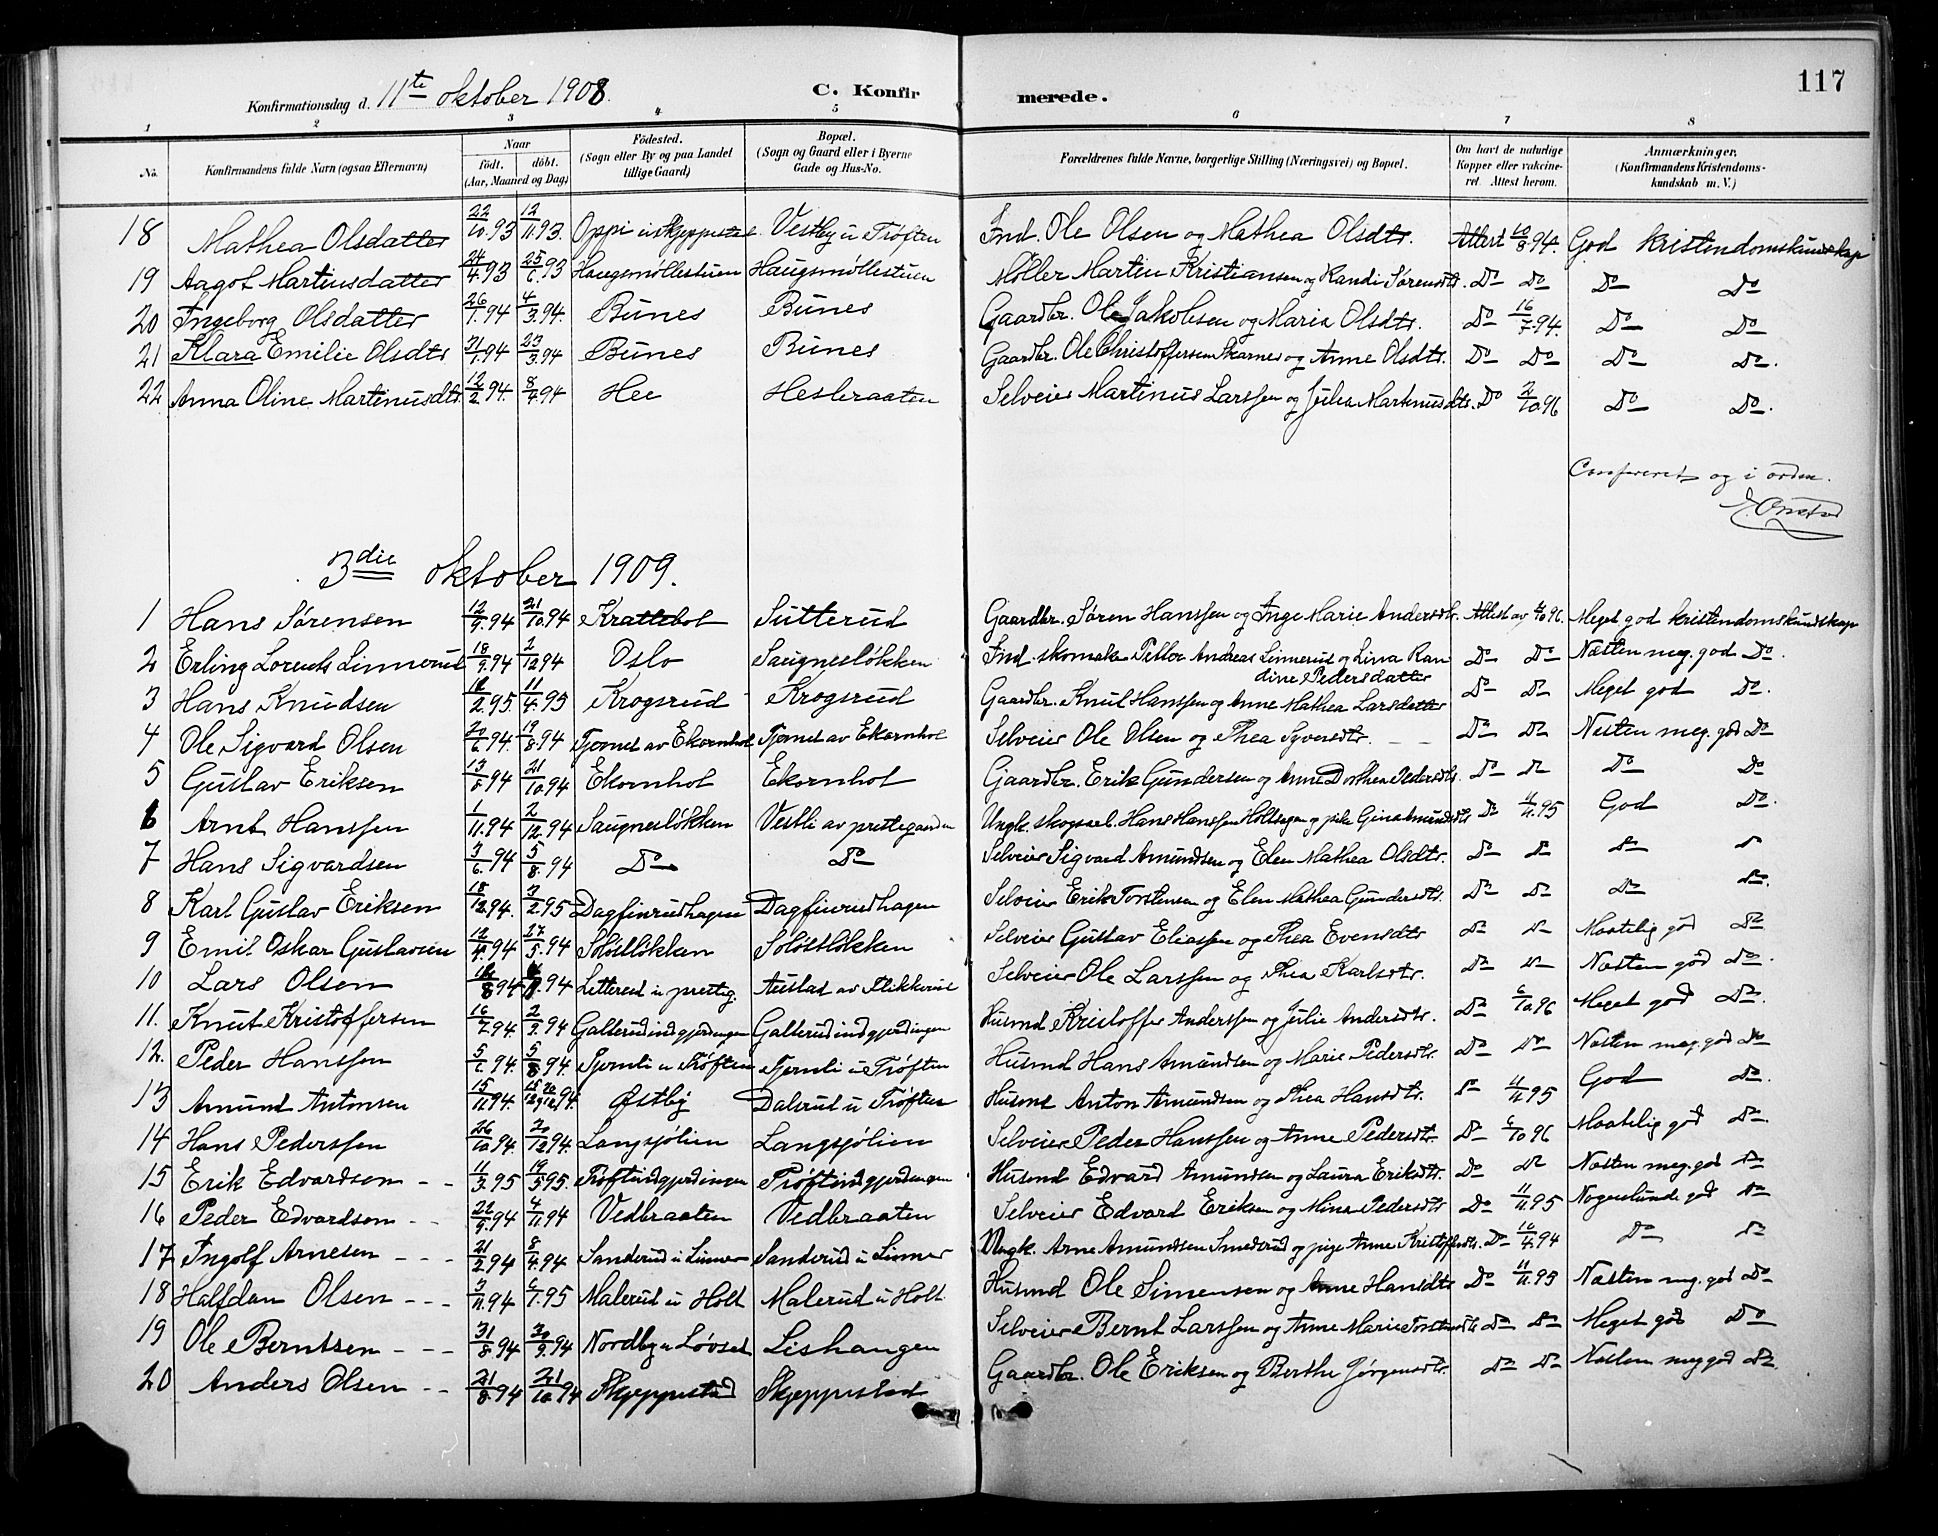 117
Konfirmationsdag d. 11te oktober 1908. C. Konfirmerede.
1 2 3 4 5 6 7 8
No. Konfirmandens fulde Navn (ogsaa Efternavn) Naar født. døbt. (Aar, Maaned og Dag) Fødested. (Sogn eller By og paa Landet tillige Gaard) Bopæl. (Sogn og Gaard eller i Byerne Gade og Hus-No. Forældrenes fulde Navne, borgerlige Stilling (Næringsvei) og Bopæl. Om havt de naturlige Kopper eller vakcineret. Attest herom. Anmærkninger. (Konfirmandens Kristendomskundskab m. V.)
18 Mathea Olsdatter 22/10.93 12/11.93. Oppi u Skjeppestad Vestby u Trøften Ind. Ole Olsen og Mathea Olsdtr. Attest 10/8.94. God kristendomskundskap
19 Aagot Martinsdatter 24/4.93 25/6.93 Haugsmøllestuen Haugsmøllestuen Møller Martin Kristiansen og Randi Sørensdtr. Do Do Do Do
20 Ingeborg Olsdatter 26/1.94 4/3.94. Bunes Bunes Gaardbr. Ole Jakobsen og Maria Olsdtr. Do 16/7.94. Do Do
21 Klara Emilie Olsdtr 31/1.94 23/3.94 Bunes Bunes Gaardbr. Ole Christoffersen Skarnes og Anne Olsdtr. Do Do Do Do.
22 Anna Oline Martinusdtr. 12/2.94. 8/4.94 Hee Hesbraaten Selveier Martinus Larssen og Julia Martinusdtr. Do 2/10.96 Do Do.
Confereret og i orden.
3die oktober 1909.
1 Hans Sørensen 12/9.94 21/10.94 Krattebol Sutterud Gaardbr. Søren Hanssen og Inge Marie Andersdtr. Attest av 4/10 96. Meget god kristendomskundskap
2 Erling Lorents Linnerud 18/9.94 2/12 94 Oslo Saugnesløkken Ind. skomaker Petter Andreas Linnerud og Lina Ran Do Do Næsten meg. god Do.
dine Pedersdatter
3 Hans Knudsen 18/2.95. 11/4.95 Krogsrud Krogsrud Gaardbr. Knut Hanssen og Anne Mathea Larsdatter Do Do Meget god Do.
4 Ole Sigvard Olsen 20/6.94. 19/8.94 Tjernet av Ekornhol Tjernet av Ekornhol Selveier Ole Olsen og Thea Syversdtr. Do Do Nesten meg. god Do
5 Gustav Eriksen 13/8.94 21/10.94 Ekornhol Ekornhol Gjaardbr. Erik Gundersen og Anne Dorthea Pedersdtr. Do Do Do Do
6 Arnt Hanssen 1/11.94 2/12.94 Saugnesløkken Vestli av prestegaarden Ungk. skogsarb. Hans Hanssen Holtsagen og pike Gina Amundsdtr Do 4/11.95 God Do.
7 Hans Sigvardsen 3/6.94 5/8.94 Do Do Selveier Sigvard Amundsen og Elen Mathea Olsdtr. Do Do Do Do
8 Karl Gustav Eriksen 18/12.94. 3/2.95 Dagfinrudhagen Dagfinrudhagen Selveier Erik Torstensen og Elen Mathea Gundersdtr. Do Do Do Do.
9 Emil Oskar Gustavsen 12/4.94 27/5.94 Soløstløkken Soløstløkken Selveier Gustav Eliassen og Thea Evensdtr Do Do Maatelig god Do
10 Lars Olsen Letterud u prestg. Austad av Slikkerud Selveier Ole Larssen og Thea Karlsdtr. Do Do Næsten god Do.
11. Knut Kristoffersen 16/7.94. 2/9.94 Galterudindgjerdingen Galterudindgjerdingen Husmd Kristoffer Anderssen og Julie Andersdtr. Do 6/10.96 Meget god Do.
12. Peder Hanssen 5/7.94. 5/8.94. Tjernli u Trøften Tjernli u Trøften Husmd Hans Amundsen og Marie Pedersdtr. Do Do Næsten meg. god Do
13 Amund Antonsen 15/11 94. Østby Dalsrud u Trøften Husmd Anton Amundsen og Thea Hansdtr. Do 4/11.95 God Do.
14 Hans Pederssen 26/10.94. 20/12 94. Langsjølien Langsjølien Selveier Peder Hanssen og Anne Pedersdtr. Do 6/10 96 Maatelig god Do.
15 Erik Edvardsen 11/3.95 19/5.95. Trøftindgjerdingen Trøftindgjerdingen Husmd Edvard Amundsen og Laura Eriksdtr. Do Do Næsten meg. god Do
16 Peder Edvardsen 22/9.94 4/11.94 Vedbraaten Vedbraaten Selveier Edvard Eriksen og Mina Pedersdtr Do 4/11.95 Nogenlunde god Do
17 Ingolf Arnesen 21/2.94 8/4.94 Sanderud u Linner Sanderud u Linner Ungk. Arne Amundsen Smedsrud og pige Anne Kristoffersdtr. Do 16/4.94 Do Do
18 Halfdan Olsen 3/11.94 6/1.95 Malerud u Holt Malerud u Holt Husmd Ole Simensen og Anne Hansdtr Do 4/11.95 Næsten meg. god Do
19 Ole Berntsen 31/8.94 30/9.94 Nordby u Løvset Lishaugen Selveier Bernt Larssen og Anne Marie Torstensdtr Do Do Meget god Do
20 Anders Olsen 21/8.94 21/10.94 Skjeppestad Skjeppestad Gaardbr. Ole Eriksen og Berthe Jørgensdtr. Do Do Næsten meg god Do